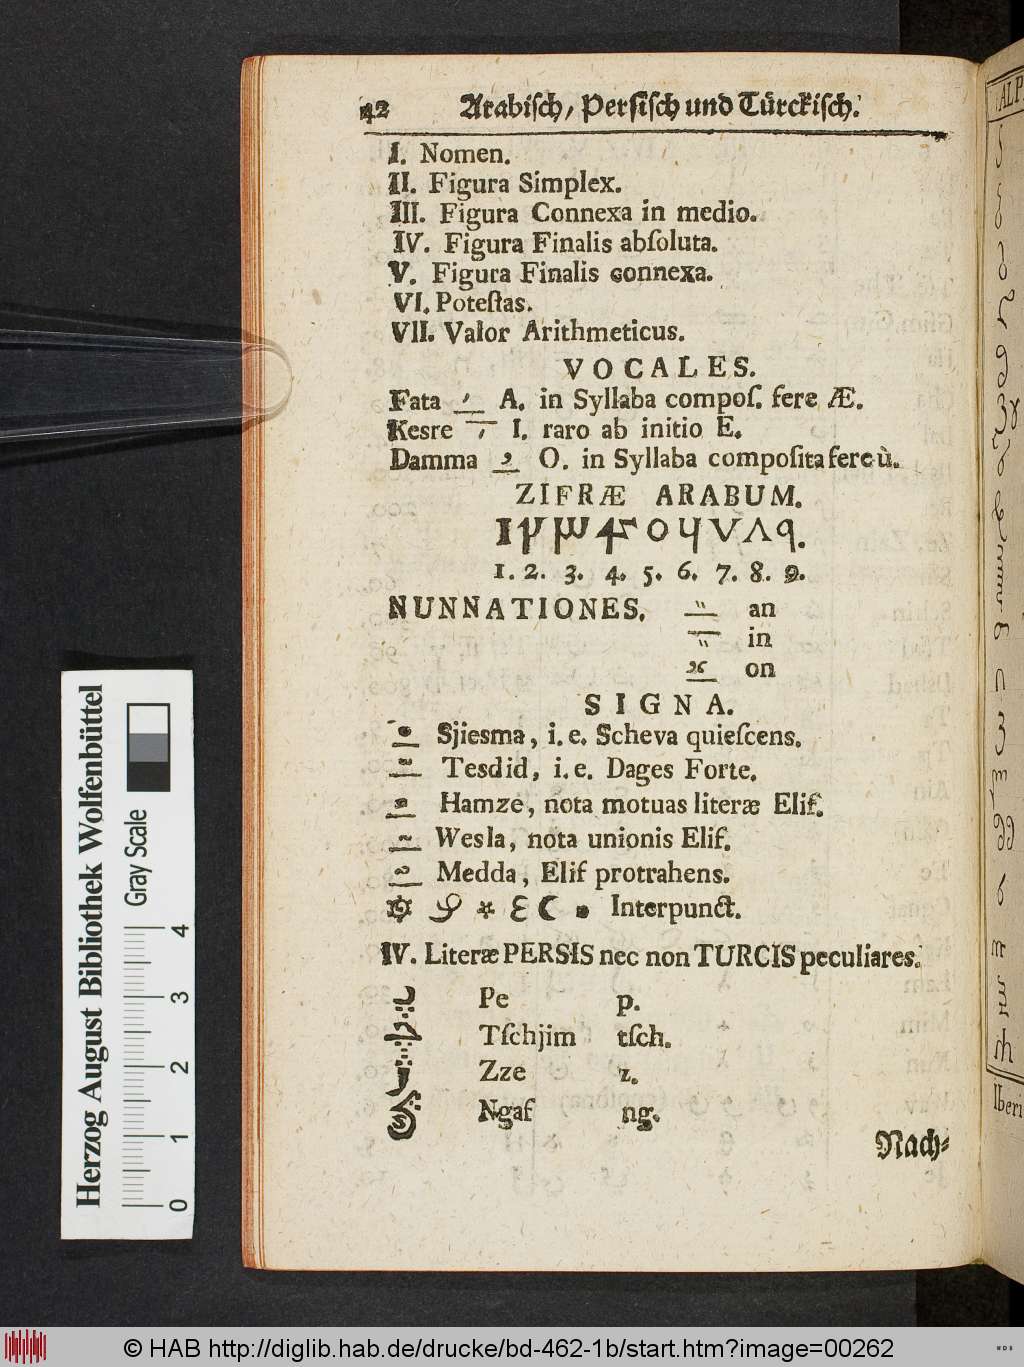 42 Arabiſch/ Perſiſch und Türckiſch.
I. Nomen.
II. Figura Simplex.
III. Figura Connexa in medio.
IV. Figura Finalis abſoluta.
V. Figura Finalis connexa.
VI. Poteſtas.
VII. Valor Arithmeticus.
VOCALES.
Fata A. in Syllaba compoſ. fere Æ.
Kesre I. raro ab initio E.
Damma O. in Syllaba compoſita fere ù.
ZIFRÆ ARABUM.
1. 2. 3. 4. 5. 6. 7. 8. 9.
NUNNATIONES. an
in
on
SIGNA.
Sjiesma, i. e. Scheva quieſcens.
Tesdid, i. e. Dages Forte.
Hamze, nota motuas literæ Elif.
Wesla, nota unionis Elif.
Medda, Elif protrahens.
Interpunct.
IV. Literæ PERSIS nec non TURCIS peculiares.
Pe p.
Tſchjim tſch.
Zze z.
Ngaf ng.
Nach-
ALP
Iberi
Herzog August Bibliothek Wolfenbüttel
Gray Scale
0 1 2 3 4
© HAB http://diglib.hab.de/drucke/bd-462-1b/start.htm?image=00262